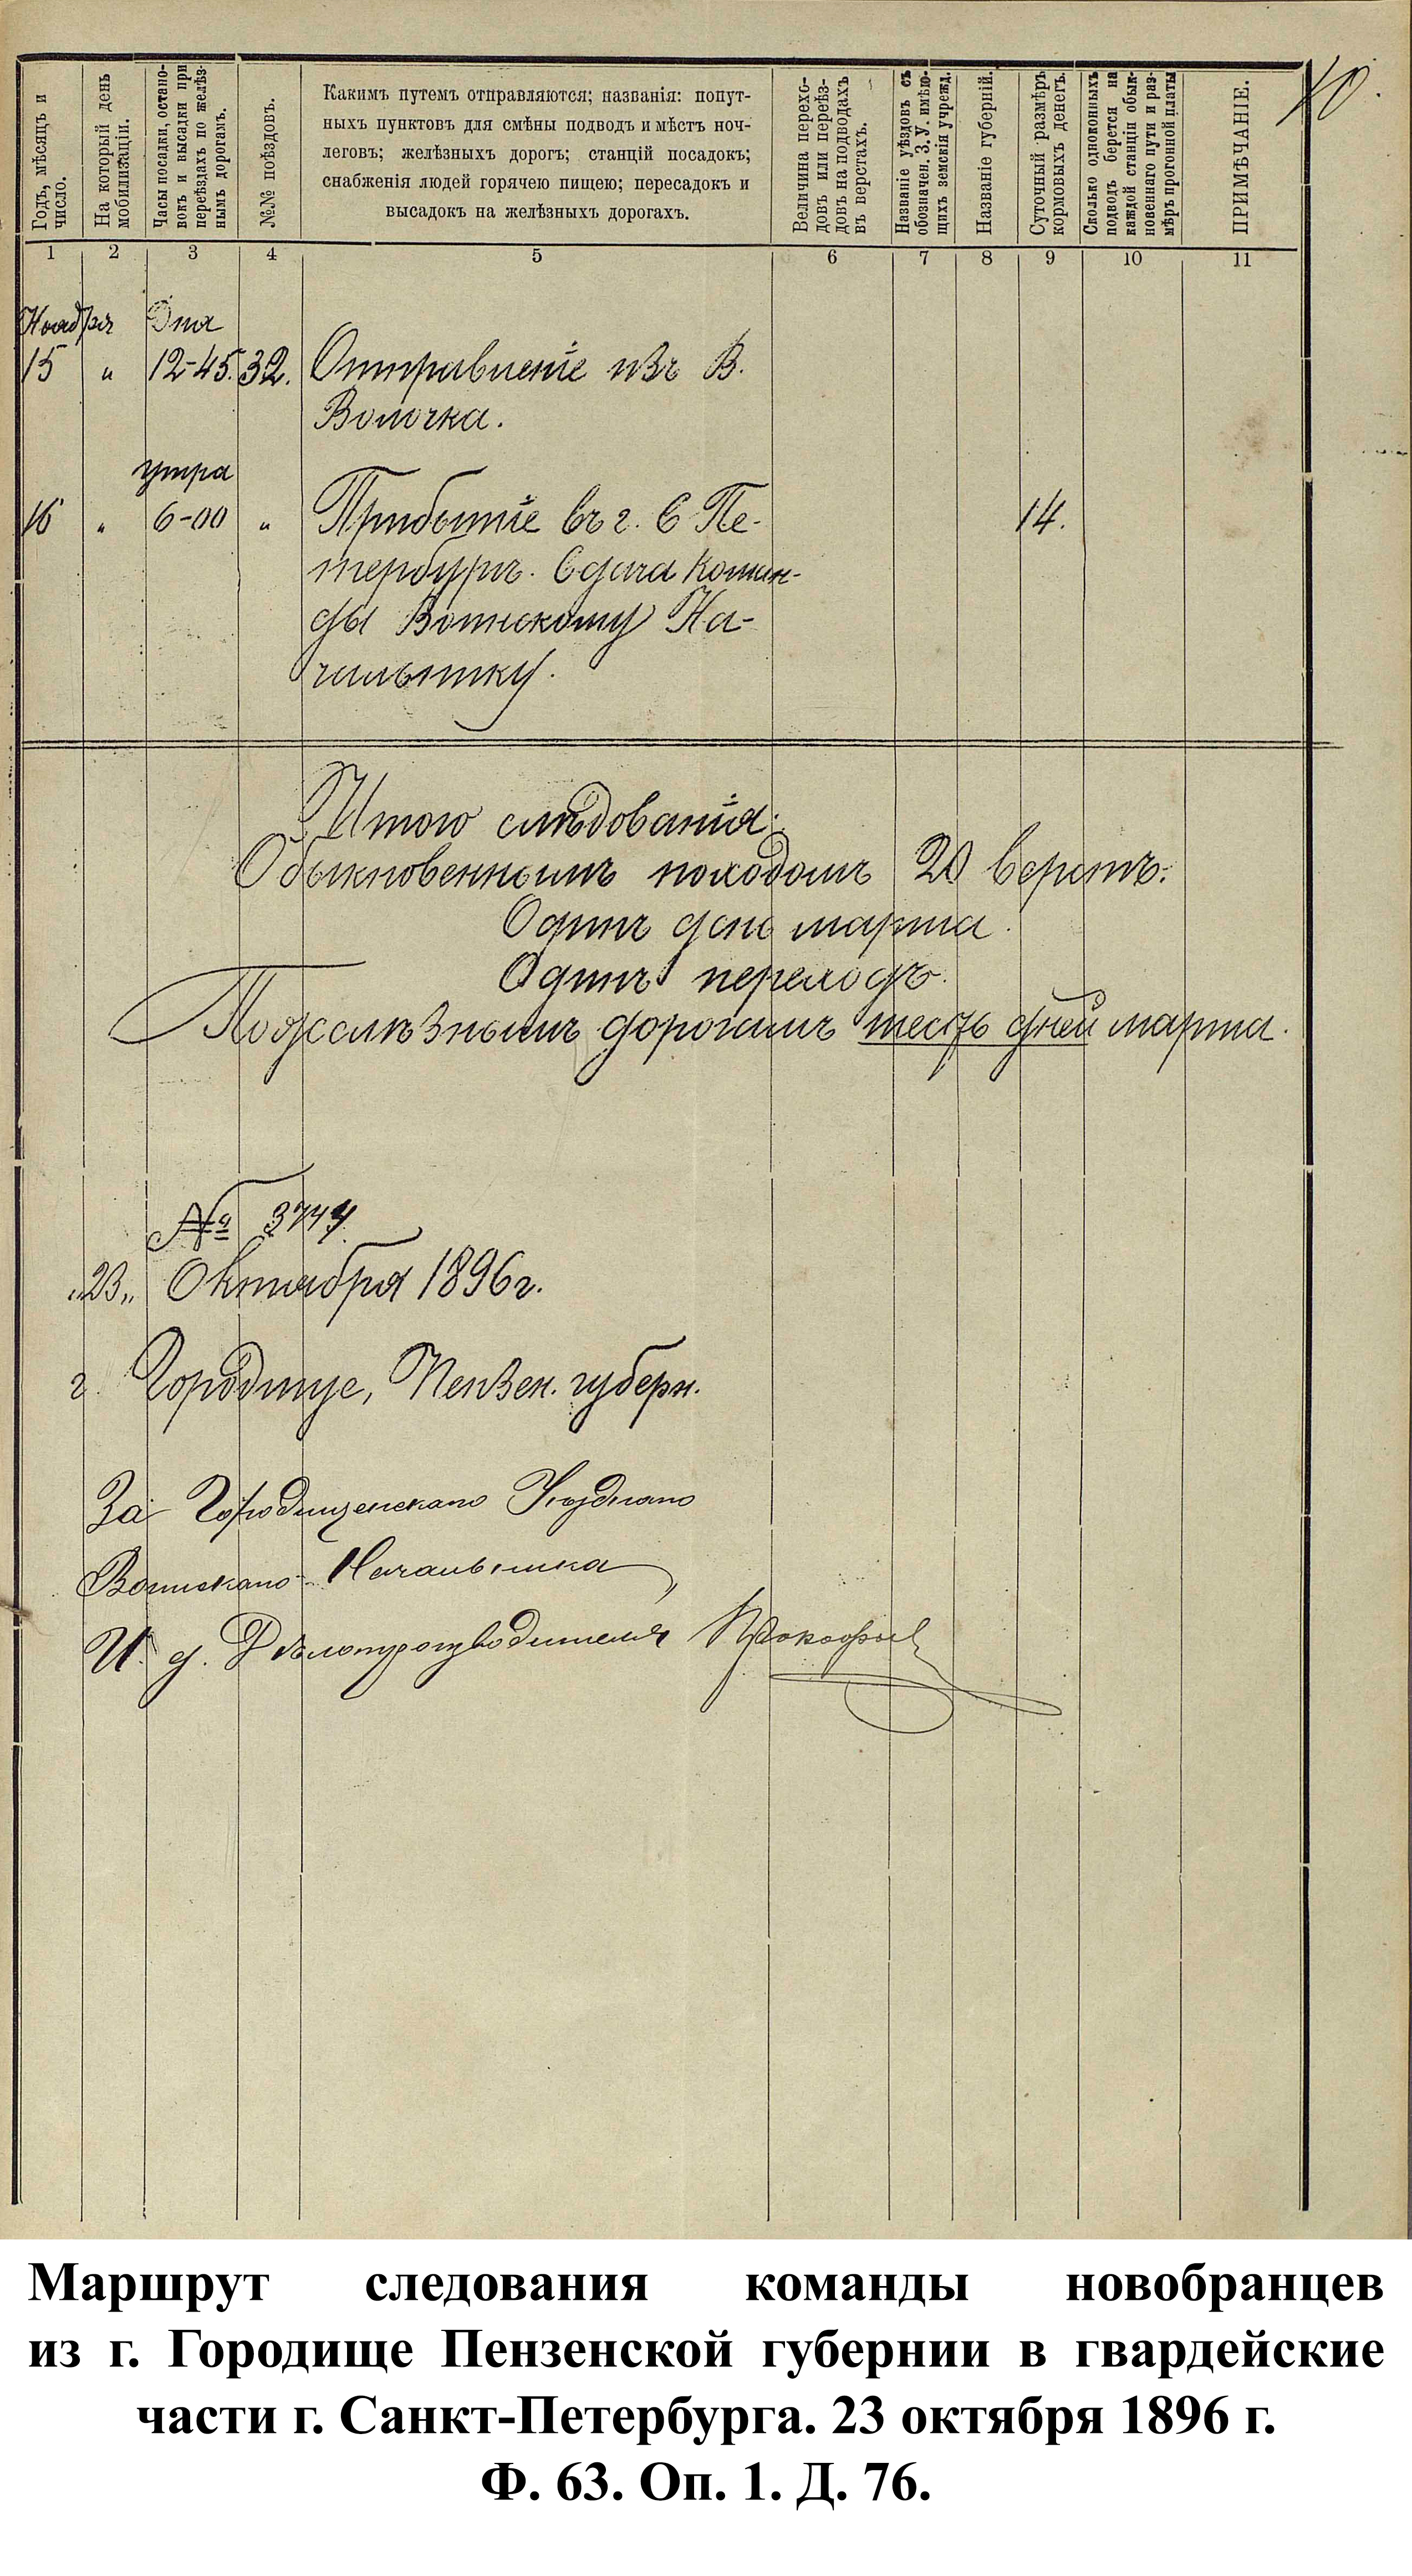 10.
Годъ, мѣсяцъ и
число.
На который день
мобилизаціи.
Часы посадки, остано-
вокъ и высадки при
переѣздахъ по желѣз-
нымъ дорогамъ.
№№ поѣздовъ.
Какимъ путемъ отправляются; названія: попут-
ныхъ пунктовъ для смѣны подводъ и мѣстъ ноч-
леговъ; желѣзныхъ дорогъ; станцій посадокъ;
снабженія людей горячею пищею; пересадокъ и
высадокъ на желѣзныхъ дорогахъ.
Величина перехо-
довъ или переѣз-
довъ на подводахъ
въ верстахъ.
Названіе уѣздовъ съ
обозначен. З. У. имѣю-
щихъ земскія учрежд.
Названіе губерній.
Суточный размѣръ
кормовыхъ денегъ.
Сколько одноконныхъ
подводъ берется на
каждой станціи обык-
новеннаго пути и раз-
мѣръ прогонной платы
ПРИМѢЧАНІЕ.
1 2 3 4 5 6 7 8 9 10 11
Ноября Дня
15 " 12-45. 32. Отправленіе изъ В.
Волочка.
утра
16 " 6-00 " Прибытіе въ г. С Пе- 14.
тербургъ. Сдача коман-
ды Воинскому На-
чальнику.
Итого слѣдованія:
Обыкновеннымъ походомъ 20 верстъ:
Одинъ день марша.
Одинъ переходъ.
По желѣзнымъ дорогамъ шесть дней марша.
№ 3744.
"23" Октября 1896 г.
г. Городище, Пензен. губерн.
За Городищенскаго Уѣзднаго
Воинскаго Начальника,
И. д. Дѣлопроизводителя Прокофьев
Маршрут следования команды новобранцев
из г. Городище Пензенской губернии в гвардейские
части г. Санкт-Петербурга. 23 октября 1896 г.
Ф. 63. Оп. 1. Д. 76.